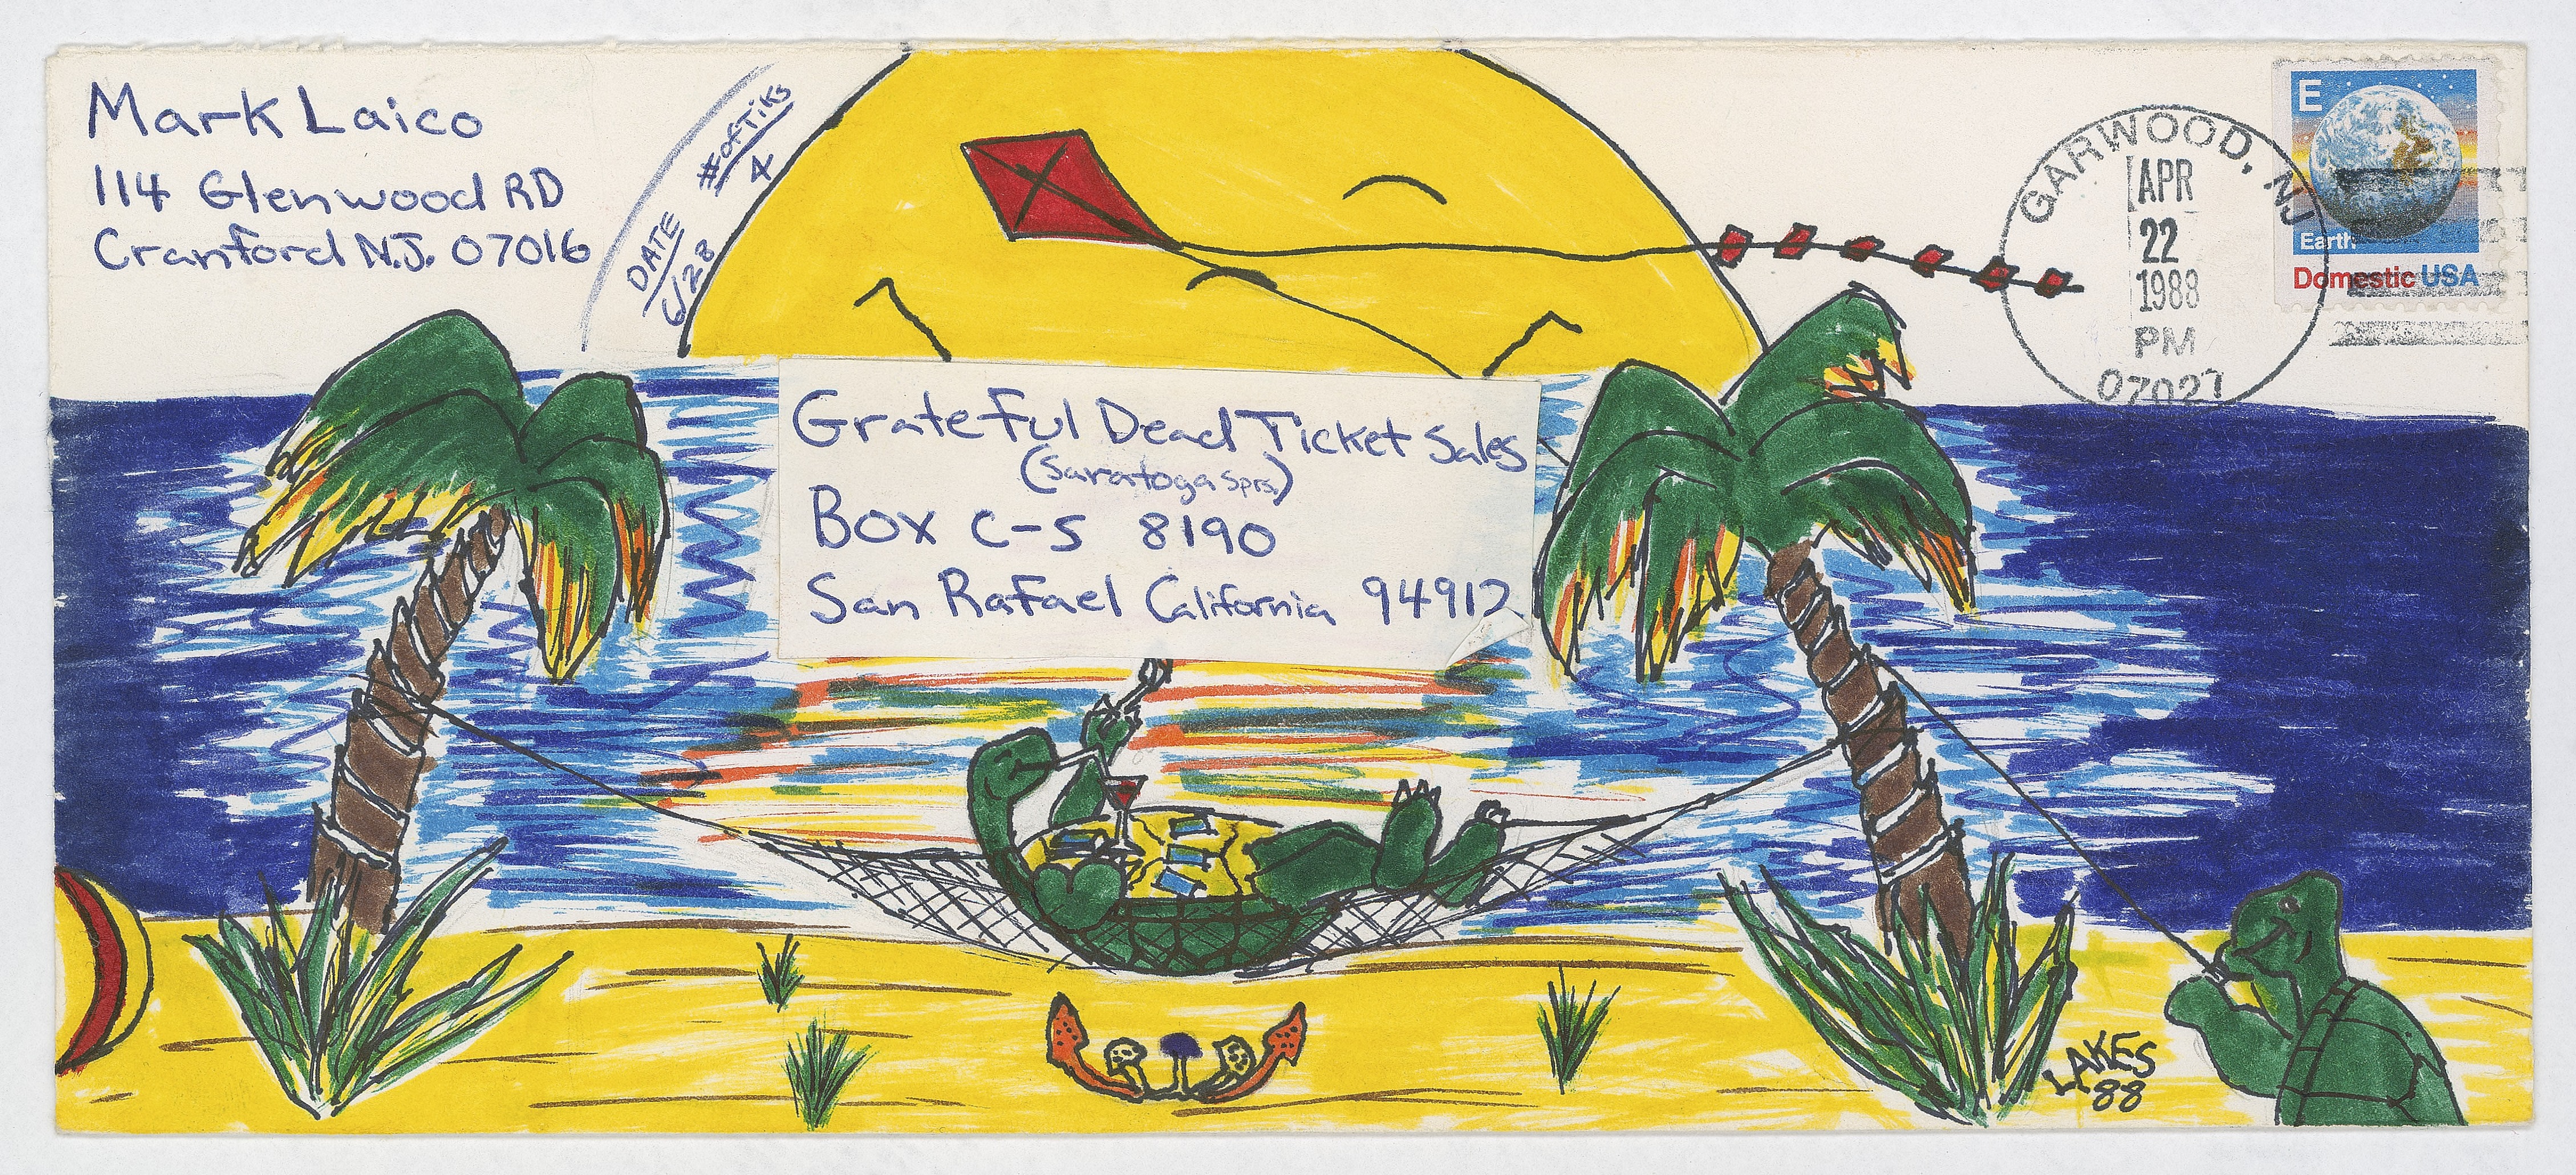 Mark Laico
114 Glenwood RD
Cranford N.J. 07016
DATE
6/28
#ofTiks
4
Grateful Dead Ticket Sales
(Saratoga Sprs.)
Box C-S 8190
San Rafael California 94912
GARWOOD, NJ
APR
22
1988
PM
07027
E
Earth
Domestic USA
LAKES
88